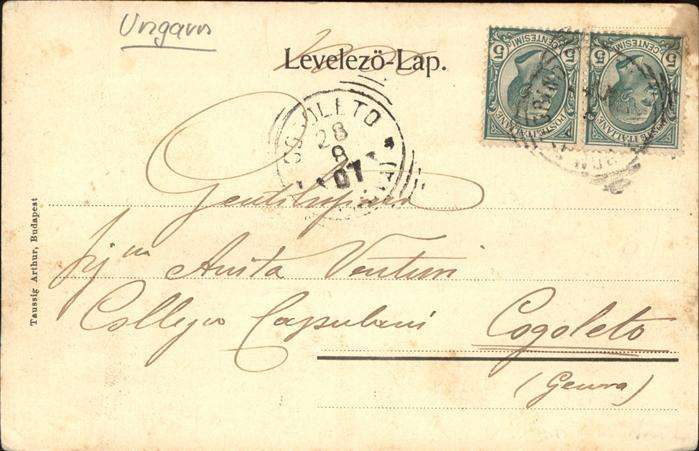 Ungarn
Levelező-Lap.
5 CENTESIMI 5
POSTE ITALIANE
5 CENTESIMI 5
POSTE ITALIANE
COGOLETO
28
8
07
Signa Anita Venturi
Collegio Capulani Cogoleto
(Genova)
Taussig Arthur, Budapest